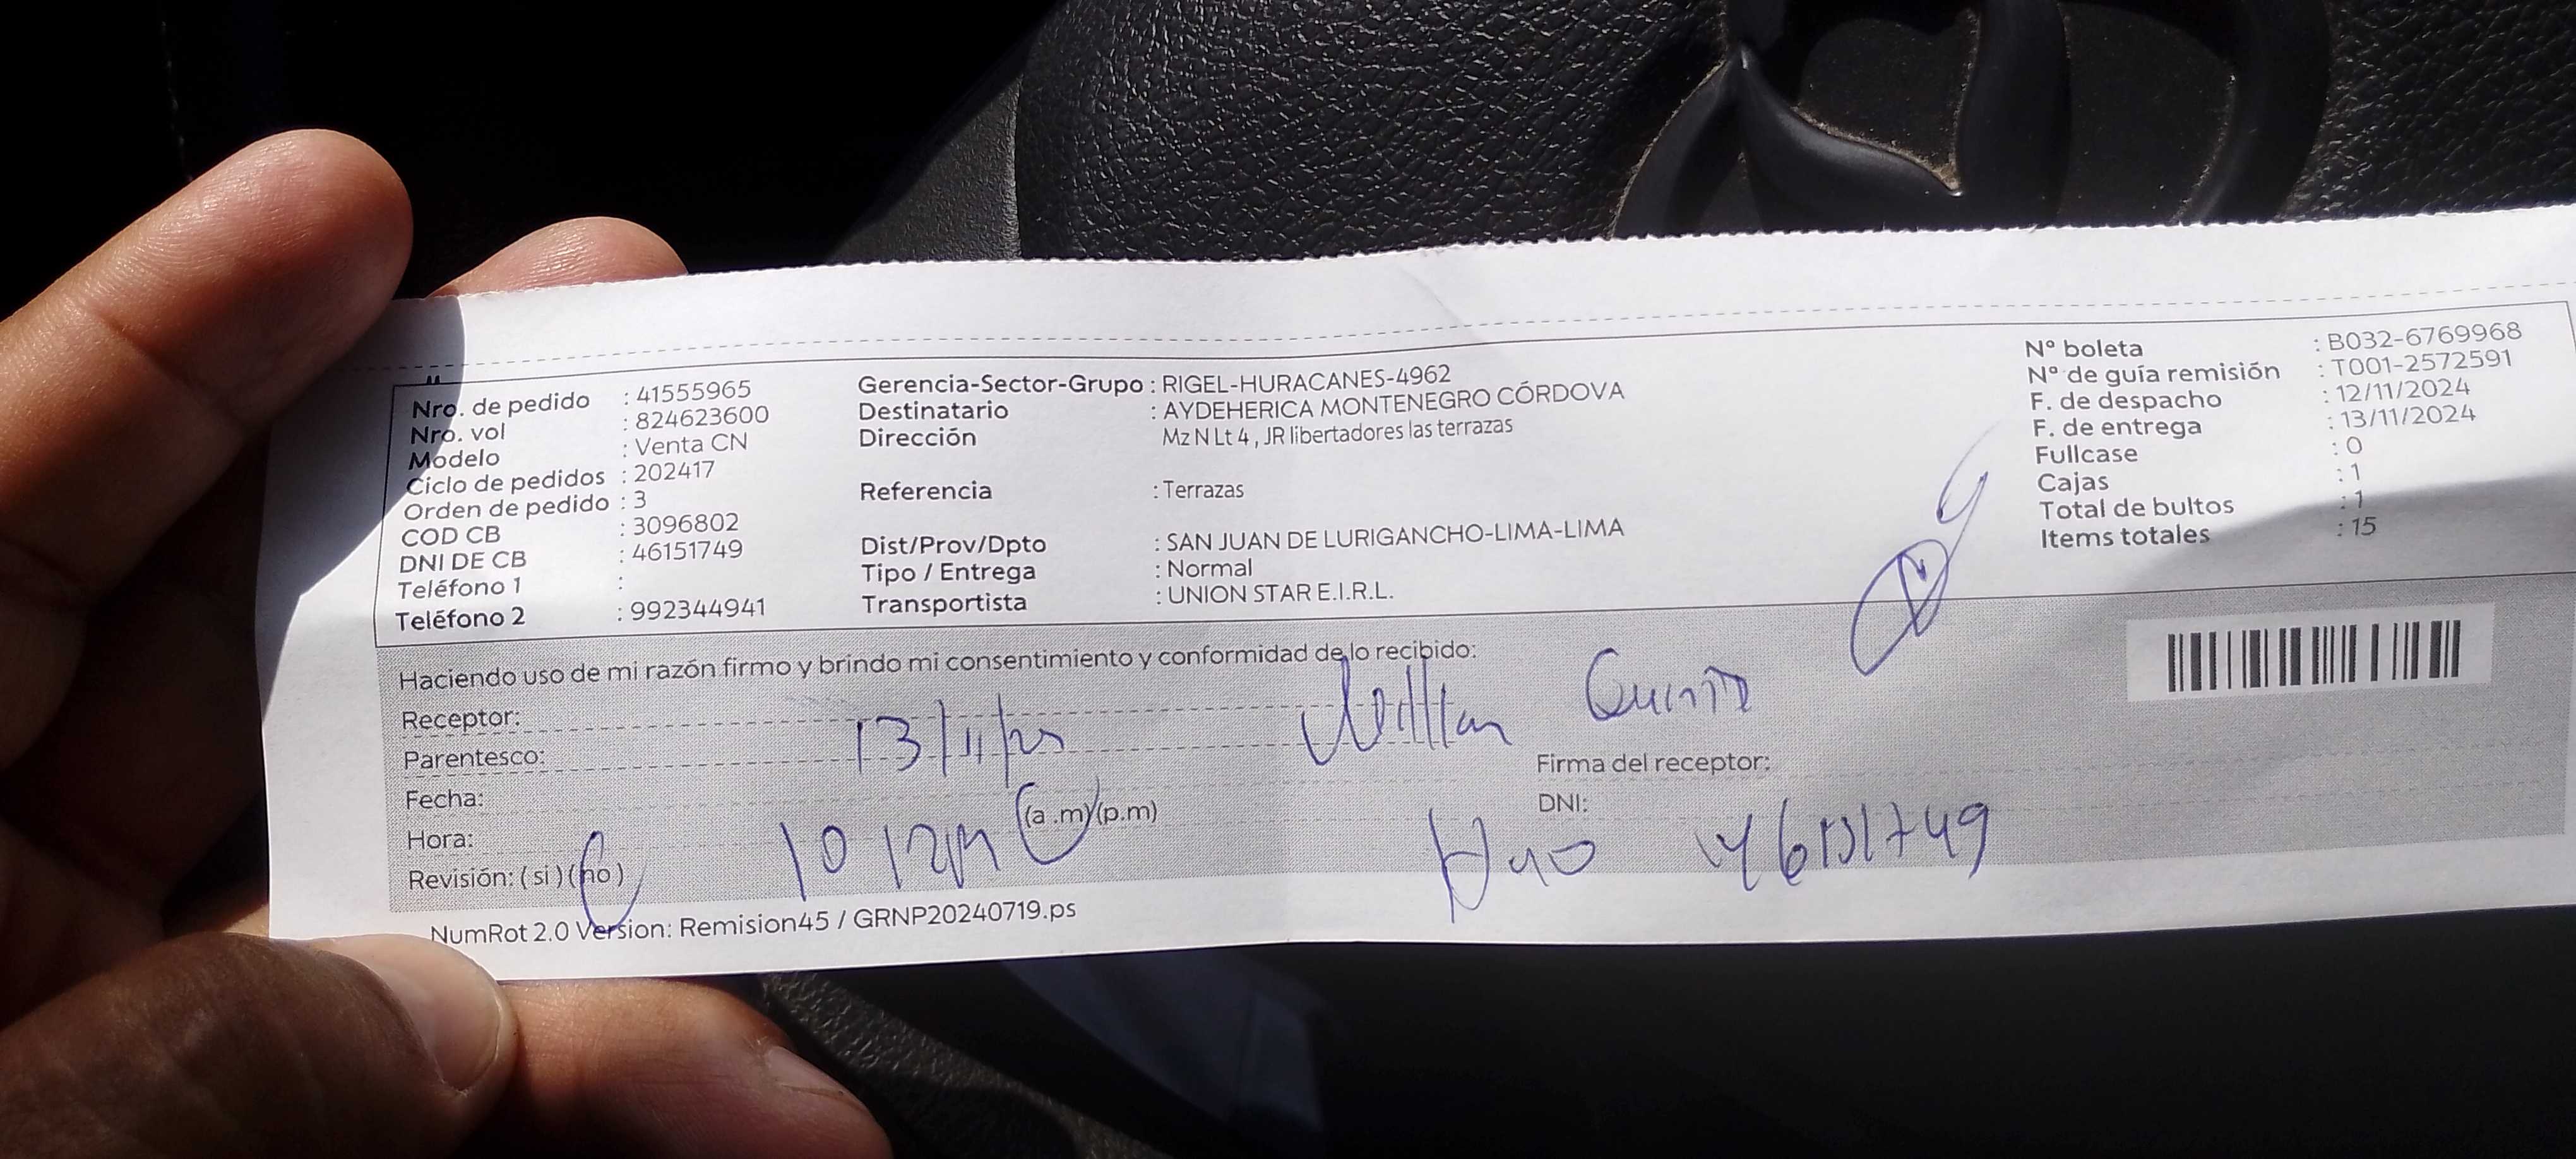 Nro. de pedido : 41555965
Nro. vol : 824623600
Modelo : Venta CN
Ciclo de pedidos : 202417
Orden de pedido : 3
COD CB : 3096802
DNI DE CB : 46151749
Teléfono 1 :
Teléfono 2 : 992344941
Gerencia-Sector-Grupo : RIGEL-HURACANES-4962
Destinatario : AYDEHERICA MONTENEGRO CÓRDOVA
Dirección Mz N Lt 4 , JR libertadores las terrazas
Referencia : Terrazas
Dist/Prov/Dpto : SAN JUAN DE LURIGANCHO-LIMA-LIMA
Tipo / Entrega : Normal
Transportista : UNION STAR E.I.R.L.
N° boleta : B032-6769968
N° de guía remisión : T001-2572591
F. de despacho : 12/11/2024
F. de entrega : 13/11/2024
Fullcase : 0
Cajas : 1
Total de bultos : 1
Items totales : 15
Haciendo uso de mi razón firmo y brindo mi consentimiento y conformidad de lo recibido:
Receptor:
Parentesco:
Fecha:
Hora: (a .m)(p.m)
Revisión: ( si ) (no )
Firma del receptor:
DNI:
NumRot 2.0 Version: Remision45 / GRNP20240719.ps